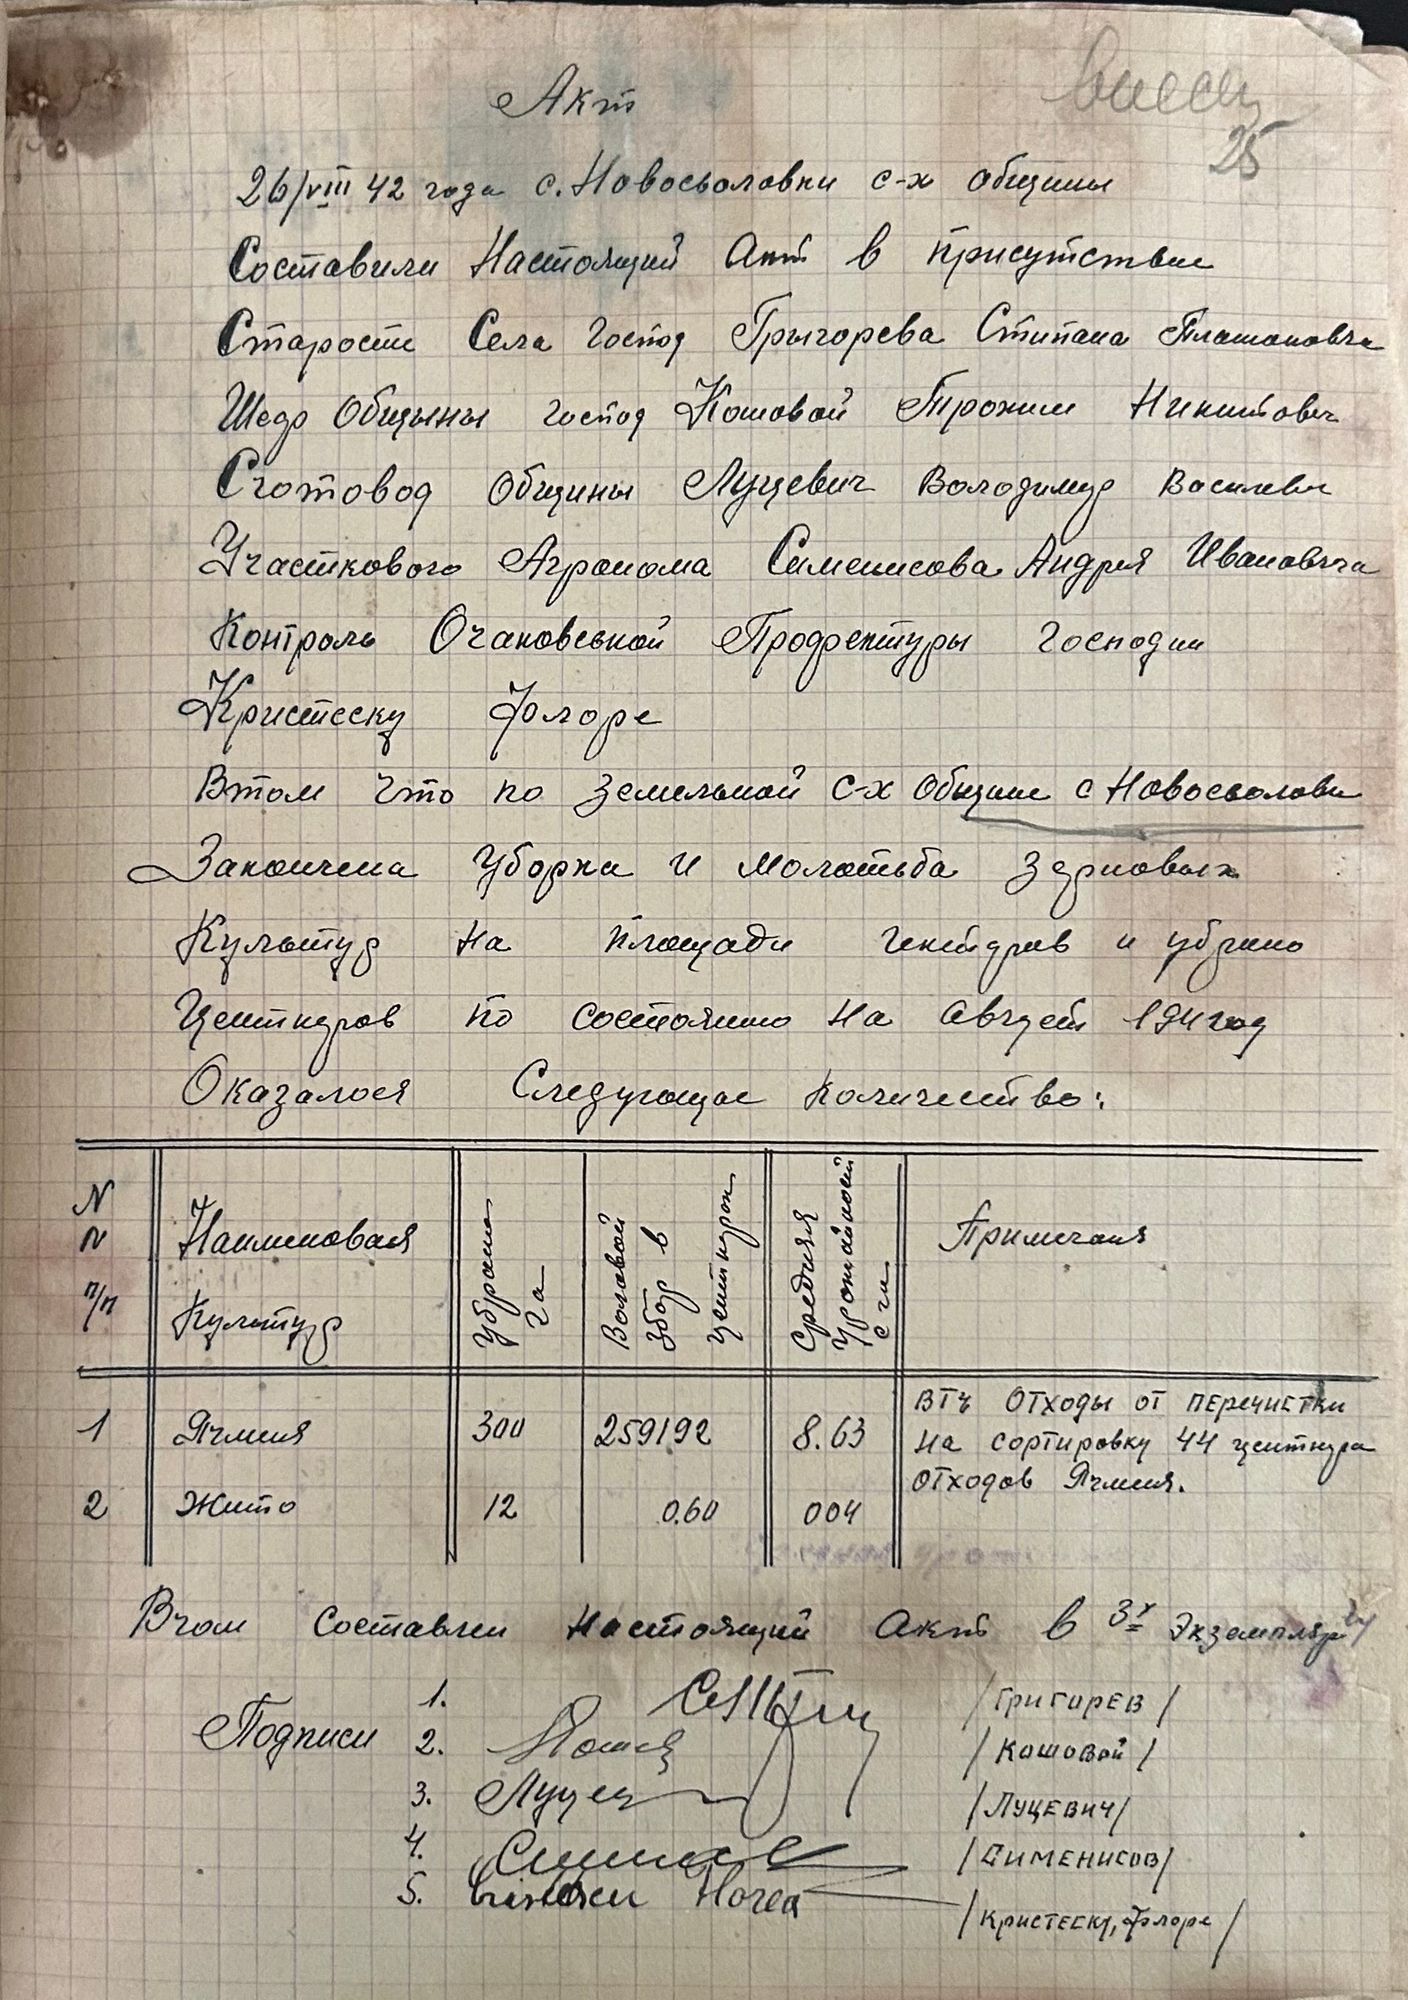 Акт
25
26/VIII 42 года с. Новосьоловки с-х общины
Составили Настоящий Акт в присутствие
Старости Села Господ Грыгорева Стипана Платоновча
Шедр Общыны господ Кошовой Трохим Никитович
Счотовод Общины Луцевич Володимир Василевич
Участкового Агронома Сименисова Андрея Ивановича
Контроль Очановськой Префектуры Господин
Кристеску Флоре
Втом что по Земельной с-х Общине с Новосьоловки
Закончена Уборка и молотьба зерновых
Культур на площади гектаров и убрано
Центнеров по состоянию на Август 194 год
Оказалося Следующое количество:
N N п/п
Наименования Культур
Убрано га
Воловой збор в центнерах
Средняя Урожайност с га
Примечания
1 Ячмия 300 259192 8.63
ВТЧ ОТХОДЫ ОТ ПЕРЕЧИСТКИ
НА СОРТИРОВКУ 44 центнера
ОТХОДОВ Ячмия.
2 Жито 12 0.60 004
Вчом составлен настоящий Акт в 3х Экземпляр
Подписи
1. /ГРИГОРЕВ/
2. /КОШОВОЙ/
3. Луцев /ЛУЦЕВИЧ/
4. /СИМЕНИСОВ/
5. Cristescu Florea /КРИСТЕСКУ, Флоре/